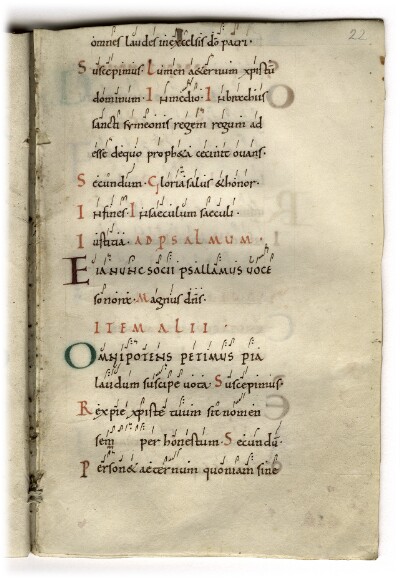 22
omnes laudes in excelsis dõ patri·
Suscepimus· Lumen aeternum xpistũ
dominum· In medio· In brachiis
sancti symeonis regem regum ad
esse de quo propheta cecinit ouans·
Secundum· Gloria salus & honor·
In fines· In saeculum saeculi·
Iustitia· AD PSALMUM·
EIA NUNC SOCII PSALLAMUS UOCE
sonora· Magnus dñs·
ITEM ALII
OMNIPOTENS PETIMUS PIA
laudum suscipe uota· Suscepimus·
Rex pie xpiste tuum sit nomen
sem per honestum· Secundũ·
Personet aeternum quoniam sine